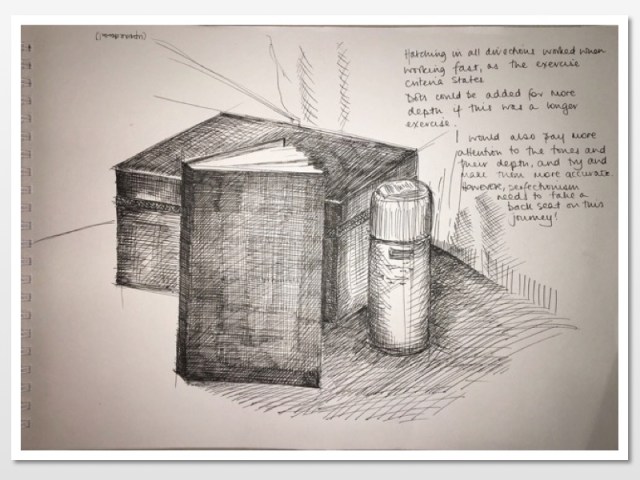 Hatching in all directions worked when
working fast, as the exercise
criteria states
Dots could be added for more
depth if this was a longer
exercise.
I would also pay more
attention to the tones and
their depth, and try and
make them more accurate.
However, perfectionism
needs to take a
back seat on this
journey!